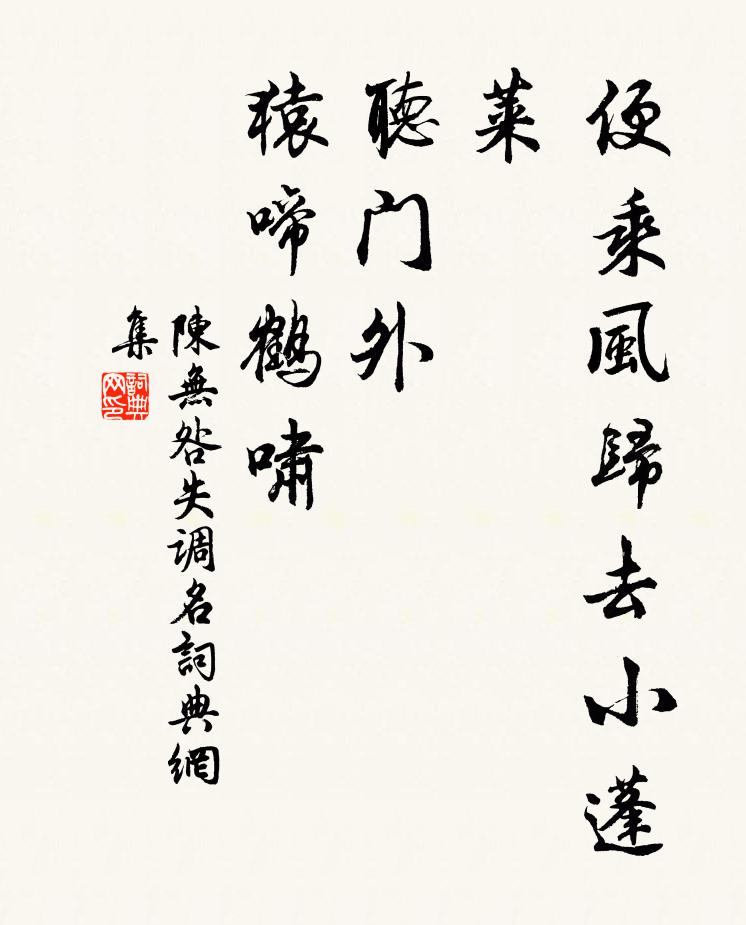 便乘風歸去小蓬
萊
聽门外
猿啼鶴嘯
陳無咎失调名詞典網
集
詞典
网印